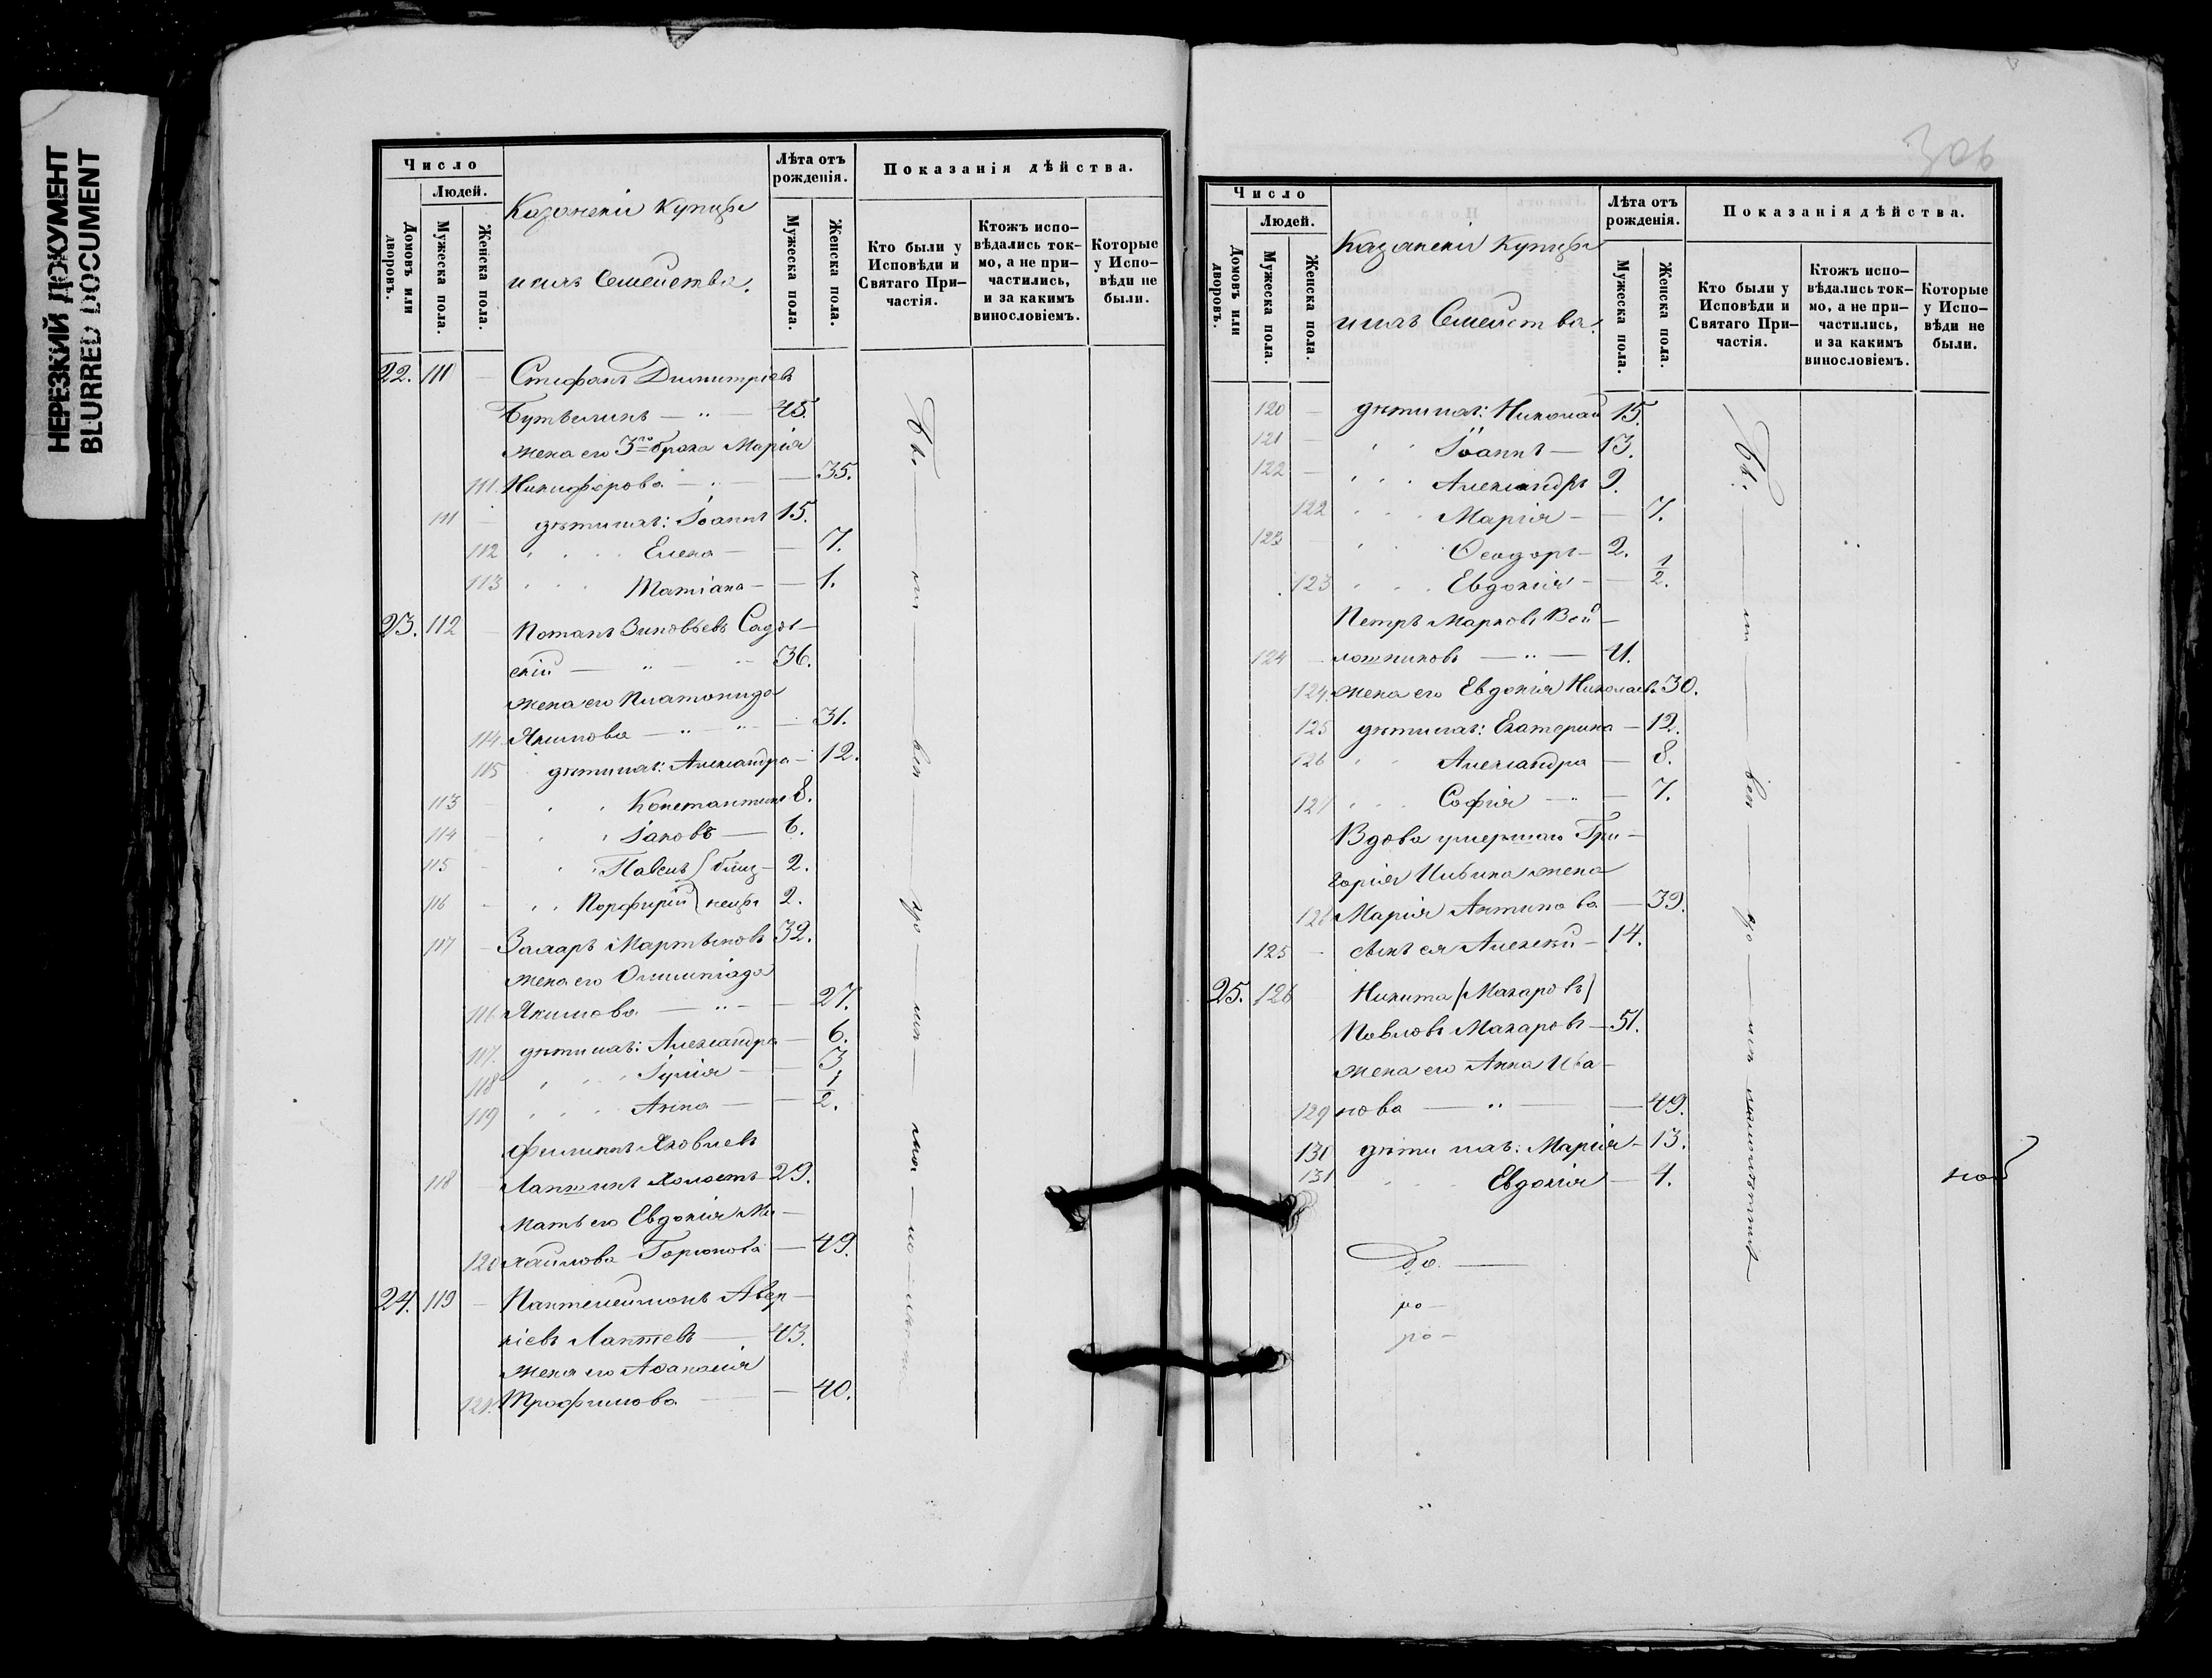 НЕРЕЗКИЙ ДОКУМЕНТ
BLURRED DOCUMENT
Число
Людей.
Домовъ или дворовъ.
Мужеска пола.
Женска пола.
Казанскіе Купцы
и ихъ Семейства.
Лѣта отъ рожденія.
Мужеска пола.
Женска пола.
Показанія дѣйства.
Кто были у Исповѣди и Святаго При-частія.
Ктожъ испо-вѣдались ток-мо, а не при-частились, и за какимъ винословіемъ.
Которые у Испо-вѣди не были.
22. 111 — Стефанъ Димитріевъ
Бутылинъ — " — 45.
жена его 3го брака Марія
111. Никифорова — 35.
111 — дѣти ихъ: Іоаннъ 15.
112 Елена — — 7.
113 Татіана — — 1.
23. 112 — Потапъ Зиновьевъ Садов—
скій — " — 36.
жена его Платонида
114. Якимова — " — 31.
115 дѣти ихъ: Александра — 12.
113 — Константинъ 8.
114 — Іаковъ — 6.
115 — Павелъ (близ— 2.
116 — Порфирій) нецы 2.
117 — Захаръ Мартыновъ 32.
жена его Олимпіада
116 Якимова — " — 27.
117. дѣти ихъ: Александра — 6.
118 Іулія — — 3.
119 Анна — — 1/2.
Филиппъ Яковлевъ
118 Лаптинъ холостъ — 29.
Мать его Евдокія Ми—
120 хайлова Горюнова — 49.
24. 119 — Пантелеимонъ Авер—
кіевъ Лаптевъ — 43.
жена его Аѳанасія
121. Трофимова — 40.
306
Число
Людей.
Домовъ или дворовъ.
Мужеска пола.
Женска пола.
Казанскіе Купцы
и ихъ Семейства.
Лѣта отъ рожденія.
Мужеска пола.
Женска пола.
Показанія дѣйства.
Кто были у Исповѣди и Святаго При-частія.
Ктожъ испо-вѣдались ток-мо, а не при-частились, и за какимъ винословіемъ.
Которые у Испо-вѣди не были.
120 — дѣти ихъ: Николай 15.
121 — Іоаннъ — 13.
122 — Александръ 9.
122 Марія — — 7.
123 — Ѳеодоръ — 2.
123 Евдокія — — 1/2.
Петръ Марковъ Вой—
124 — лошниковъ — " — 41.
124. жена его Евдокія Николаев. 30.
125 дѣти ихъ: Екатерина — 12.
126 Александра — 8.
127 Софія — — 7.
Вдова умершаго Гри—
горія жена
128 Марія Антипова — 39.
125 — сынъ ея Алексѣй — 14.
25. 126 Никита (Макаровъ)
Павловъ Макаровъ — 51.
жена его Анна Ива—
129 нова — " — 49.
130 дѣти ихъ: Марія — 13.
131 Евдокія — 4.